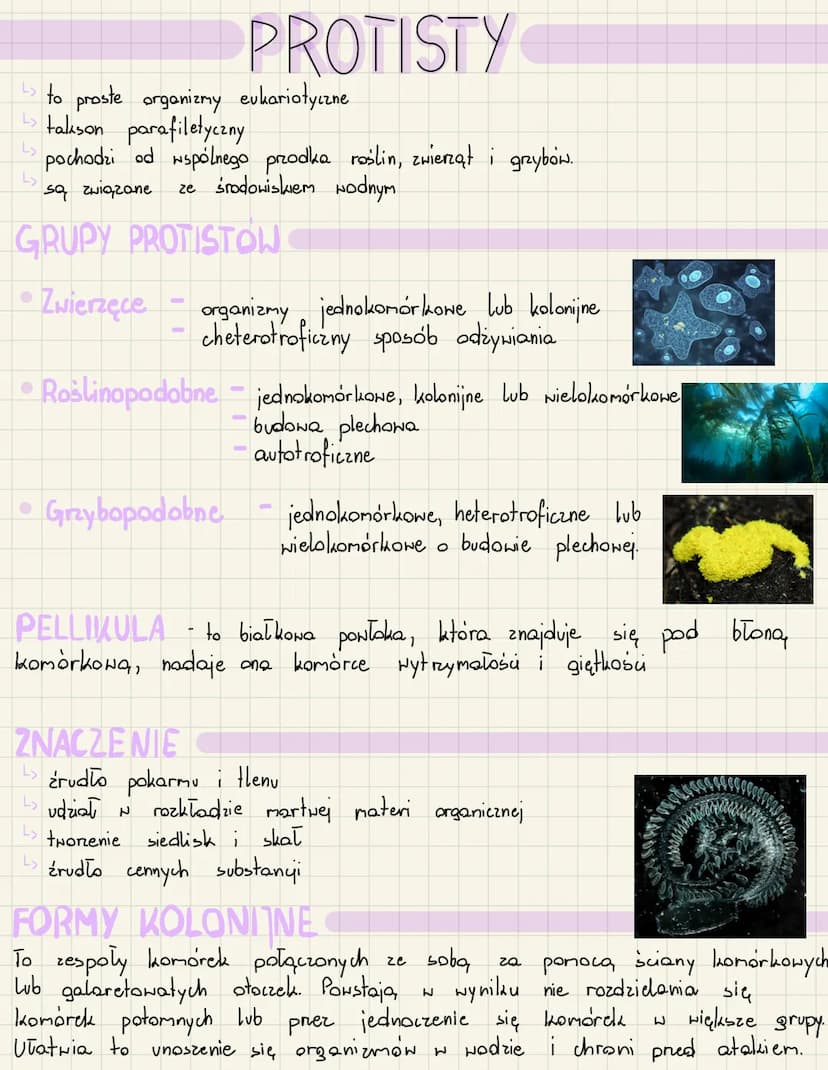 PROTISTY
↳ to proste organizmy eukariotyczne
↳ takson parafiletyczny
↳ pochodzi od wspólnego przodka roślin, zwierząt i grzybów.
↳ są związane ze środowiskiem wodnym
GRUPY PROTISTÓW
• Zwierzęce - organizmy jednokomórkowe lub kolonijne
- cheterotroficzny sposób odżywiania
• Roślinopodobne - jednokomórkowe, kolonijne lub wielokomórkowe
- budowa plechowa
- autotroficzne
• Grzybopodobne - jednokomórkowe, heterotroficzne lub
wielokomórkowe o budowie plechowej.
PELLIKULA - to białkowa powłoka, która znajduje się pod błoną
komórkową, nadaje ona komórce wytrzymałości i giętkości
ZNACZENIE
↳ źrudło pokarmu i tlenu
↳ udział w rozkładzie martwej materi organicznej
↳ tworzenie siedlisk i skał
↳ źrudło cennych substancji
FORMY KOLONIJNE
To zespoły komórek połączonych ze sobą za pomocą ściany komórkowych
lub galaretowatych otoczek. Powstają w wyniku nie rozdzielania się
komórek potomnych lub przez jednoczenie się komórek w większe grupy.
Ułatwia to unoszenie się organizmów w wodzie i chroni przed atakiem.